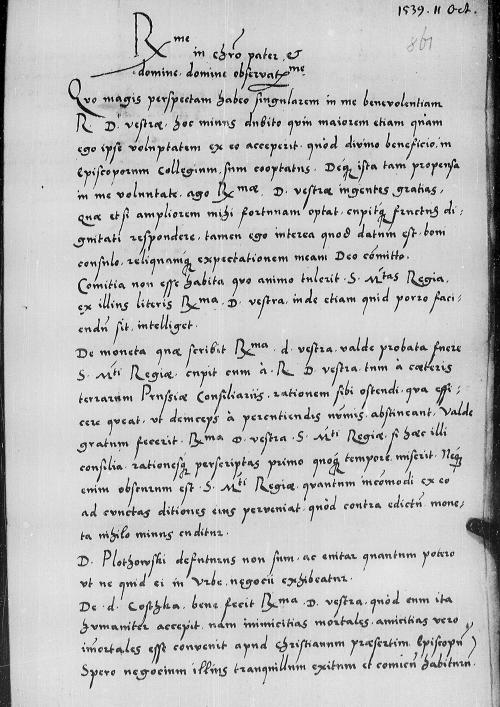 1539. 11 Oct.
861
Rme
in chro pater, et
domine, domine observatme
Quo magis perspectam habeo singularem in me benevolentiam
R D. vestrae, hoc minus dubito quin maiorem etiam quam
ego ipse voluptatem ex eo acceperit, quòd divino beneficio, in
Episcoporum Collegium, sum cooptatus. Deq ista tam propensa
in me voluntate, ago Rmae. D. vestrae ingentes gratias,
quae etsi ampliorem mihi fortunam optat, cupitq fructus di-
gnitati respondere, tamen ego interea quod datum est, boni
consulo, reliquamq expectationem meam Deo comitto.
Comitia non esse habita quo animo tulerit S. Mtas Regia,
ex illius literis Rma. D. vestra, inde etiam quid porro faci-
endu sit, intelliget.
De moneta quae scribit Rma. d. vestra, valde probata fuere
S. Mti Regiae, cupit cum à R D. vestra, tum à caeteris
terrarum Prussiae Consiliariis, rationem sibi ostendi, qua effi-
cere queat, ut deinceps à percutiendis numis, abstineant. Valde
gratum fecerit, Rma D. vestra, S. Mti Regiae, si haec illi
consilia, rationesq perscriptas primo quoq tempore miserit. Neq
enim obscurum est S. Mti Regiae, quantum incomodi ex eo
ad cunctas ditiones eius perveniat, quòd contra edictu mone-
ta nihilo minus cuditur.
D. Plothowski defuturus non sum, ac enitar quantum potero
ut ne quid ei in Urbe, negocii exhibeatur.
De d. Costhka, bene fecit Rma. D. vestra, quòd eum ita
humaniter accepit, nam inimicitias mortales, amicitias vero
imortales esse convenit apud christianum praesertim Episcopu
Spero negocium illius tranquillum exitum et comicu habituru.